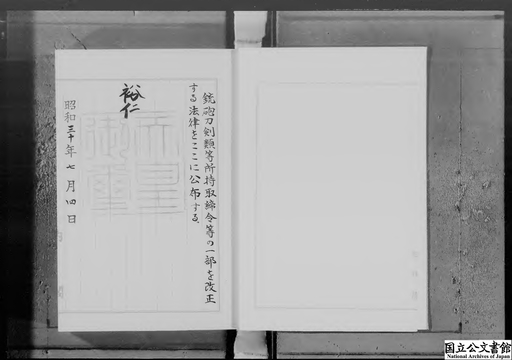 銃砲刀剣類等所持取締令等の一部を改正
する法律をここに公布する。
裕仁
天皇
御璽
昭和三十年七月四日
国立公文書館
National Archives of Japan